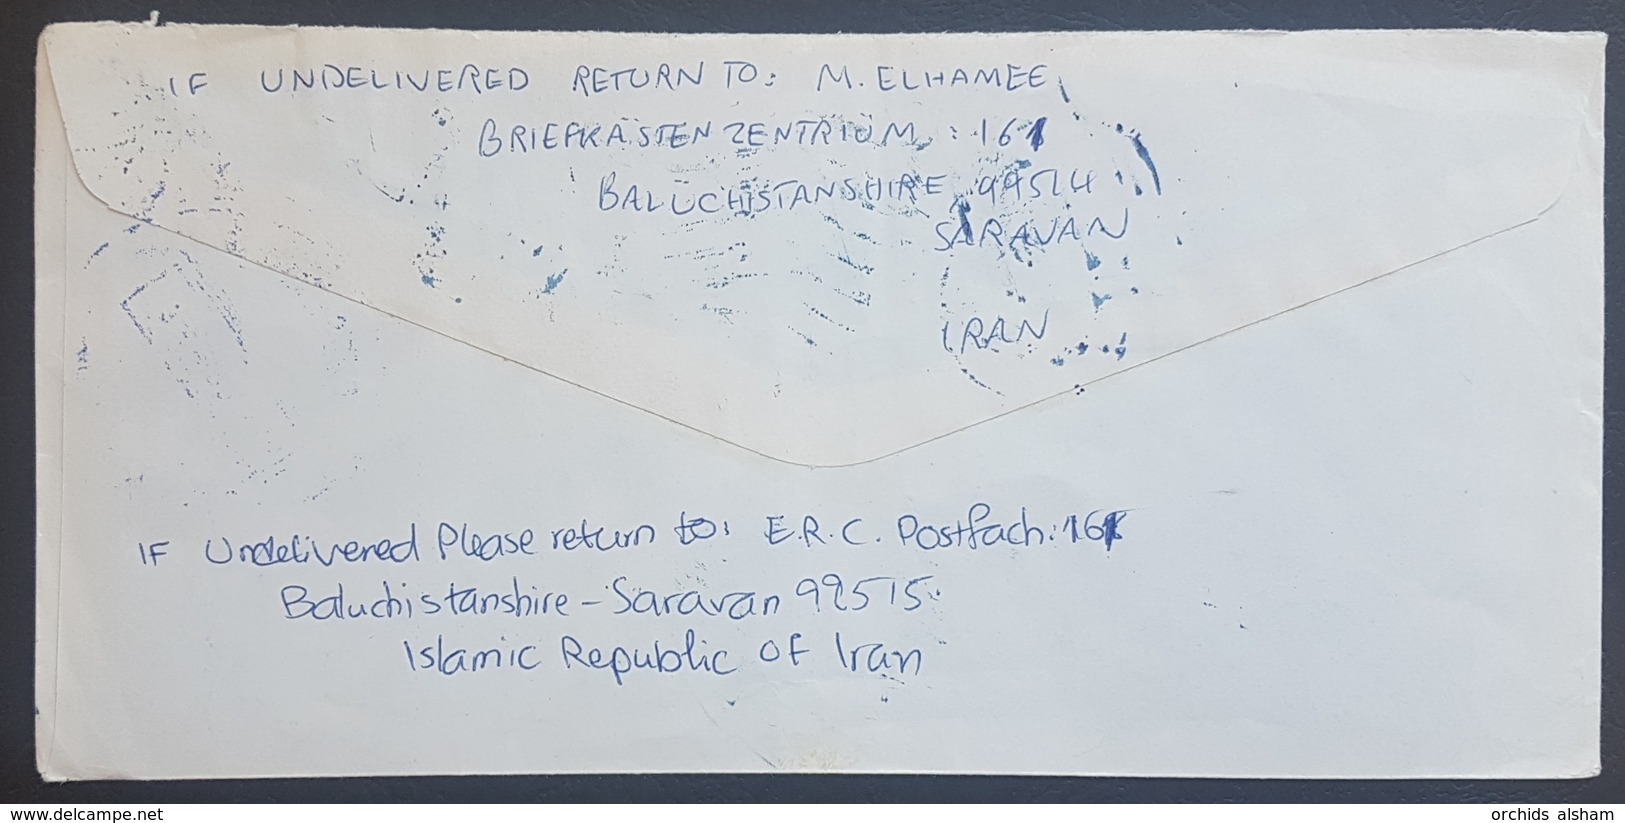 IF UNDELIVERED RETURN TO: M. ELHAMEE
BRIEFKÄSTEN ZENTRIUM: 161
BALUCHISTANSHIRE, 99514
SARAVAN
IRAN
IF Undelivered Please return to: E.R.C. Postfach: 161
Baluchistanshire - Saravan 99515
Islamic Republic OF Iran
www.delcampe.net
orchids alsham